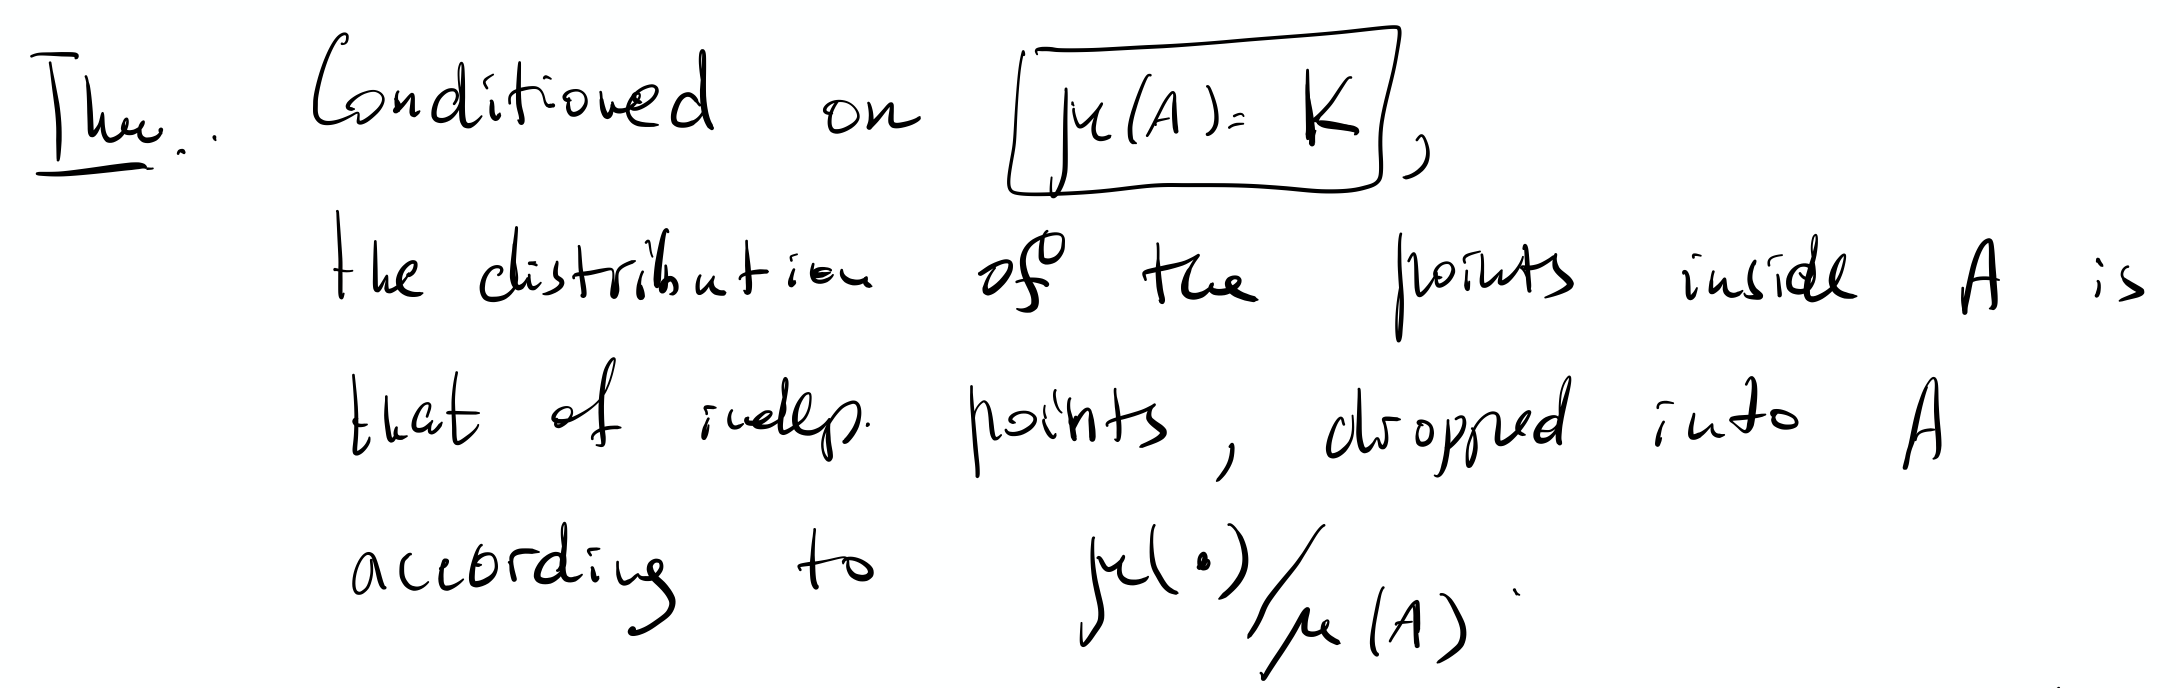 Thm. Conditioned on μ(A) = K,
the distribution of the points inside A is
that of indep. points, dropped into A
according to μ(•)/μ(A).